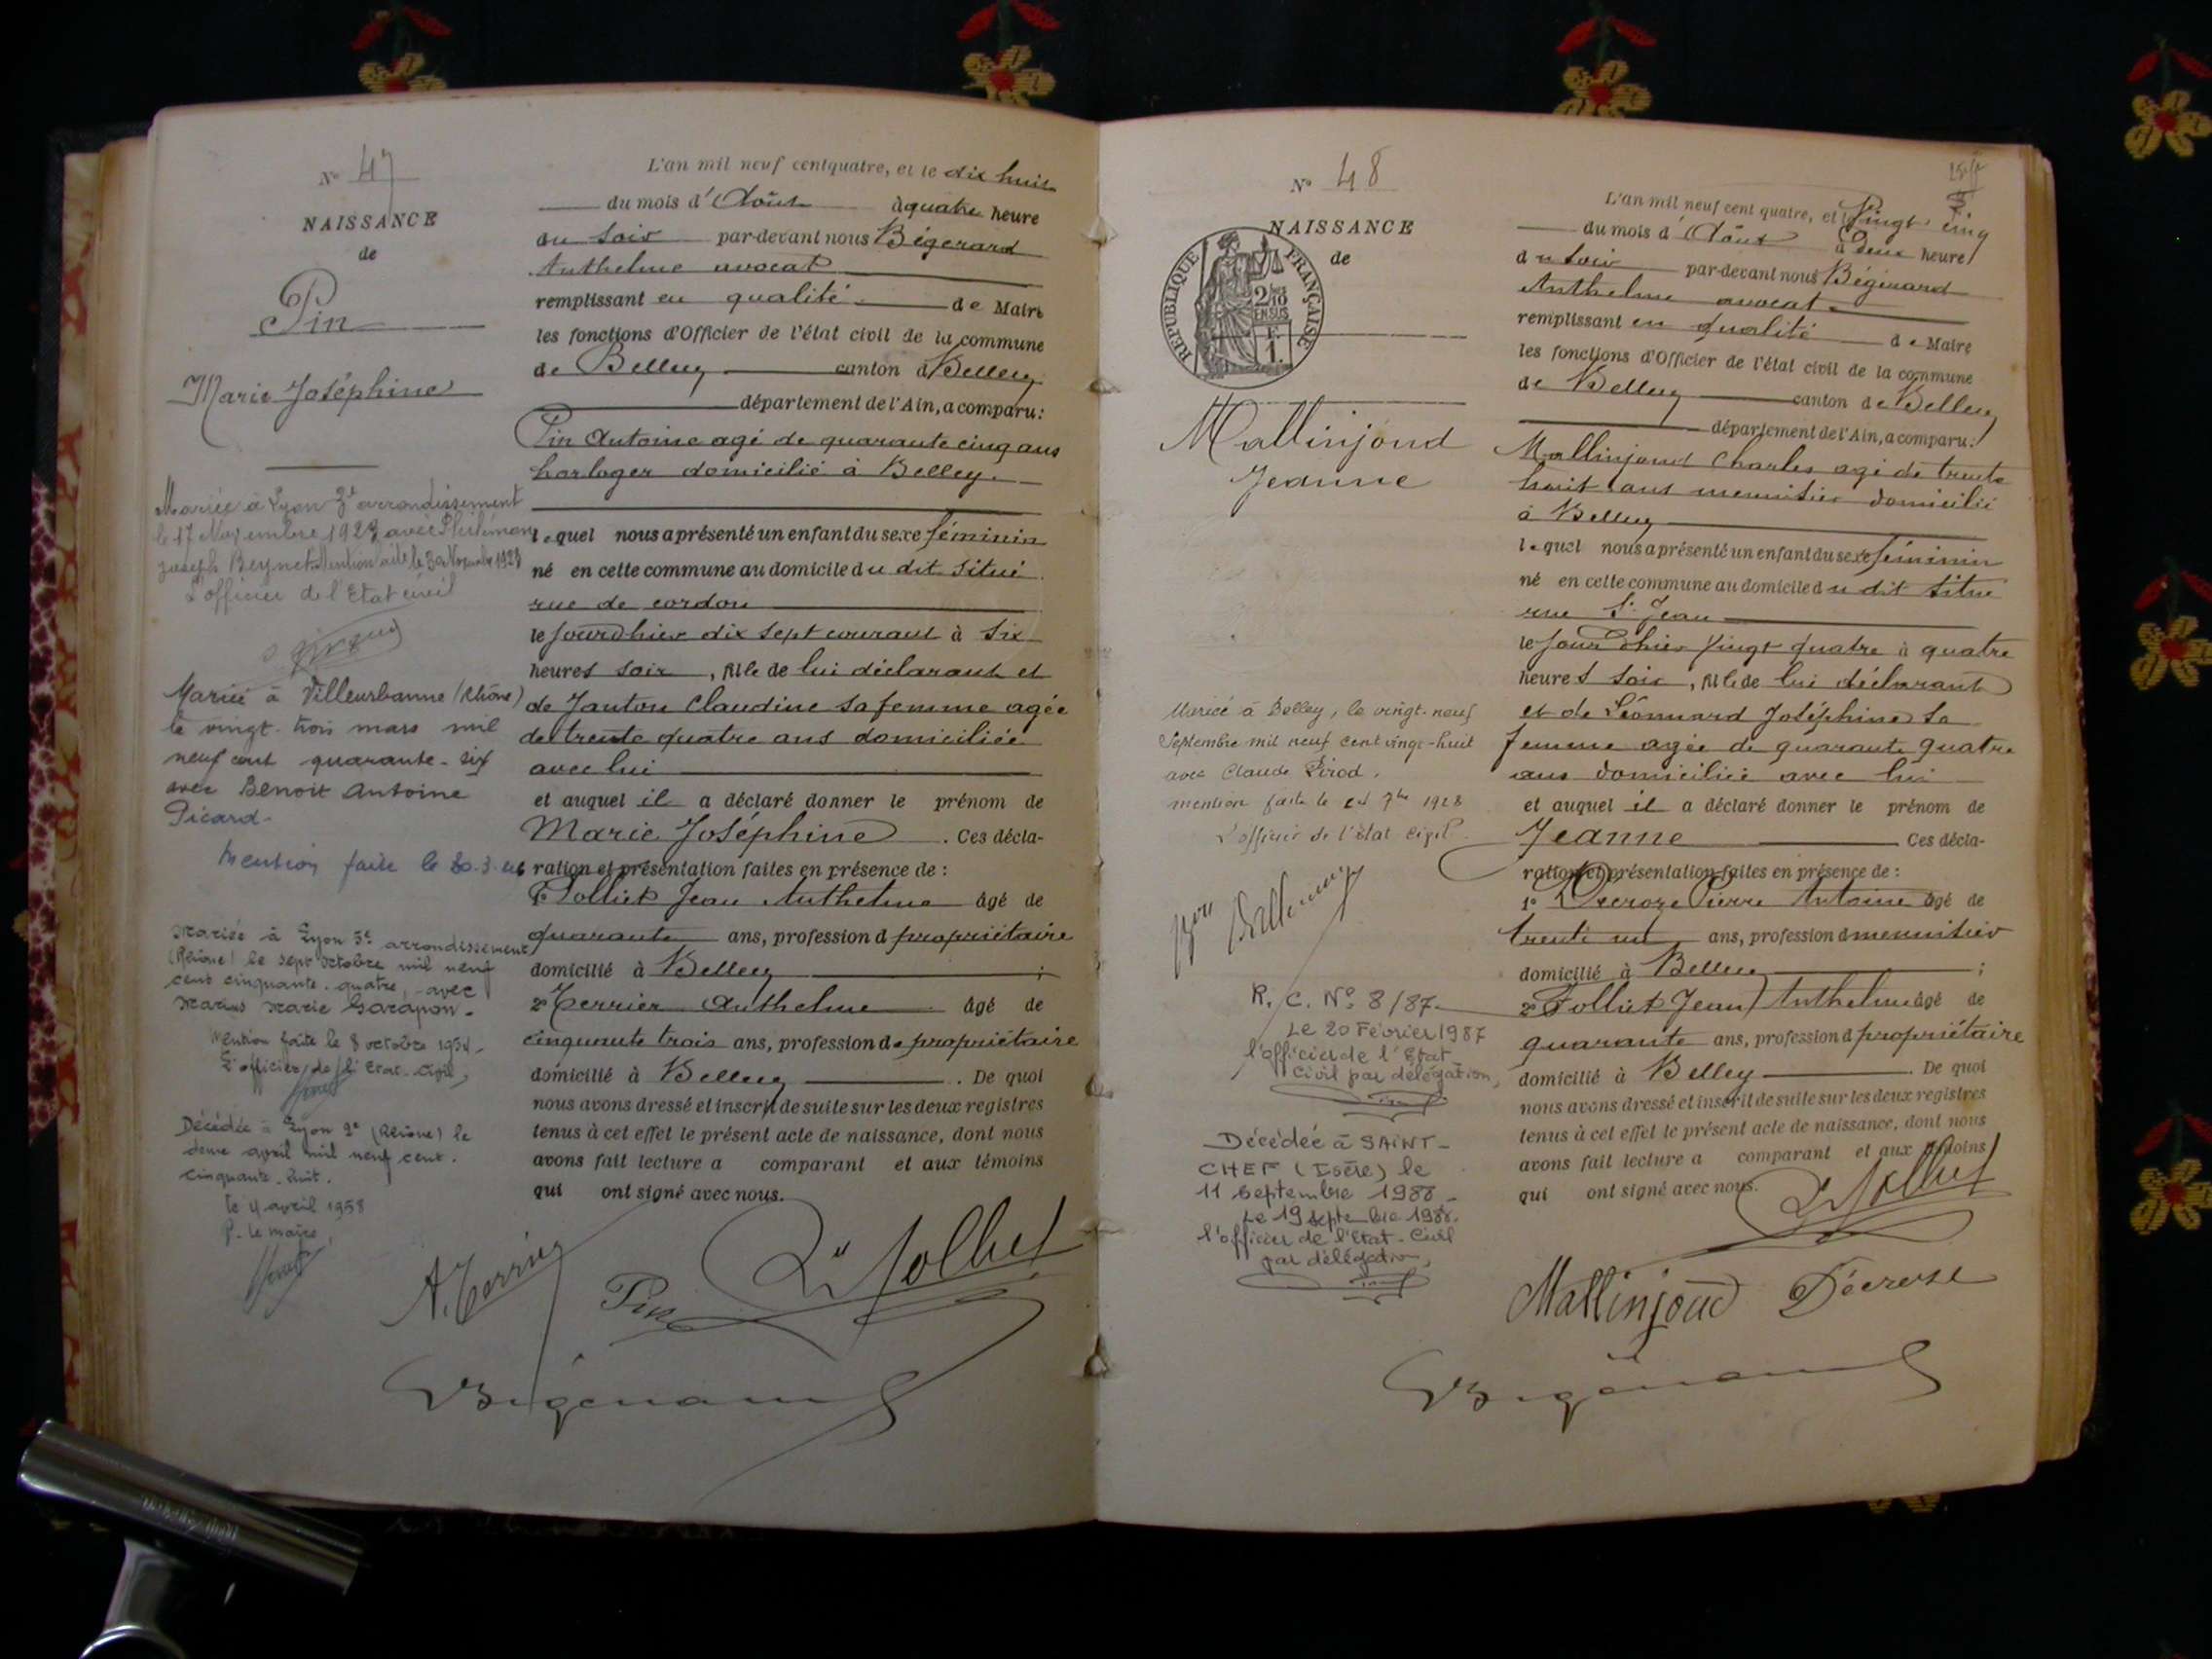 N° 47
NAISSANCE
de
Pin
Marie Joséphine
Mariée à Lyon 3e arrondissement
le 17 Novembre 1923 avec Philémon
Joseph Beynet Mention faite le 30 Novembre 1923
L'officier de l'Etat civil
Mariée à Villeurbanne (Rhône)
le vingt-trois mars mil
neuf cent quarante-six
avec Benoit Antoine
Picard-
Mention faite le 30.3.46
Mariée à Lyon 5e arrondissement
(Rhône) le sept octobre mil neuf
cent cinquante-quatre, avec
Marius Marie Garapon-
Mention faite le 8 octobre 1954-
L'officier de l'Etat-Civil,
Décédée à Lyon 2e (Rhône) le
deux avril mil neuf cent-
cinquante-huit.
le 4 avril 1958
P. le maire,
L'an mil neuf cent quatre, et le dix huit
du mois d'Août à quatre heure
du soir par-devant nous Bégerard
Anthelme avocat
remplissant en qualité de Maire
les fonctions d'Officier de l'état civil de la commune
de Belley canton d Belley
département de l'Ain, a comparu:
Pin Antoine agé de quarante cinq ans
horloger domicilié à Belley.
lequel nous a présenté un enfant du sexe féminin
né en cette commune au domicile du dit situé
rue de cordon
le jourdhier dix sept courant à six
heures soir, fille de lui déclarant et
de Janton Claudine sa femme agée
de trente quatre ans domiciliée
avec lui
et auquel il a déclaré donner le prénom de
Marie Joséphine. Ces décla-
ration et présentation faites en présence de :
1° Folliet Jean Anthelme âgé de
quarante ans, profession d propriétaire
domicilié à Belley ;
2° Terrier Anthelme âgé de
cinquante trois ans, profession de propriétaire
domicilié à Belley. De quoi
nous avons dressé et inscrit de suite sur les deux registres
tenus à cet effet le présent acte de naissance, dont nous
avons fait lecture a comparant et aux témoins
qui ont signé avec nous.
A. Terrier Pin Folliet
Bégerard
N° 48
NAISSANCE
de
RÉPUBLIQUE FRANÇAISE
2/10
EN SUS
F.
1.
Mallinjoud
Jeanne
Mariée à Belley, le vingt-neuf
Septembre mil neuf cent vingt-huit
avec Claude Pirod.
mention faite le 7bre 1928
L'officier de l'état civil.
R. C. N° 8/87-
Le 20 Février 1987
l'officier de l'Etat-
Civil par délégation,
Décédée à SAINT-
CHEF (Isère) le
11 septembre 1988-
Le 19 septembre 1988.
l'officier de l'Etat-Civil
par délégation,
L'an mil neuf cent quatre, et le Vingt cinq
du mois d'Août à Deux heure
du soir par-devant nous Bégerard
Anthelme avocat
remplissant en qualité de Maire
les fonctions d'Officier de l'état civil de la commune
de Belley canton de Belley
département de l'Ain, a comparu:
Mallinjoud Charles agé de trente
huit ans menuisier domicilié
à Belley
lequel nous a présenté un enfant du sexe féminin
né en cette commune au domicile du dit situe
rue St Jean
le jour d'hier vingt quatre à quatre
heures soir, fille de lui déclarant
et de Léonnard Joséphine sa
femme agée de quarante quatre
ans domiciliée avec lui
et auquel il a déclaré donner le prénom de
Jeanne Ces décla-
ration et présentation faites en présence de :
1° Décroze Pierre Antoine âgé de
trente un ans, profession d menuisier
domicilié à Belley ;
2° Folliet Jean Anthelme âgé de
quarante ans, profession d propriétaire
domicilié à Belley. De quoi
nous avons dressé et inscrit de suite sur les deux registres
tenus à cet effet le présent acte de naissance, dont nous
avons fait lecture a comparant et aux témoins
qui ont signé avec nous.
Folliet
Mallinjoud Décroze
Bégerard